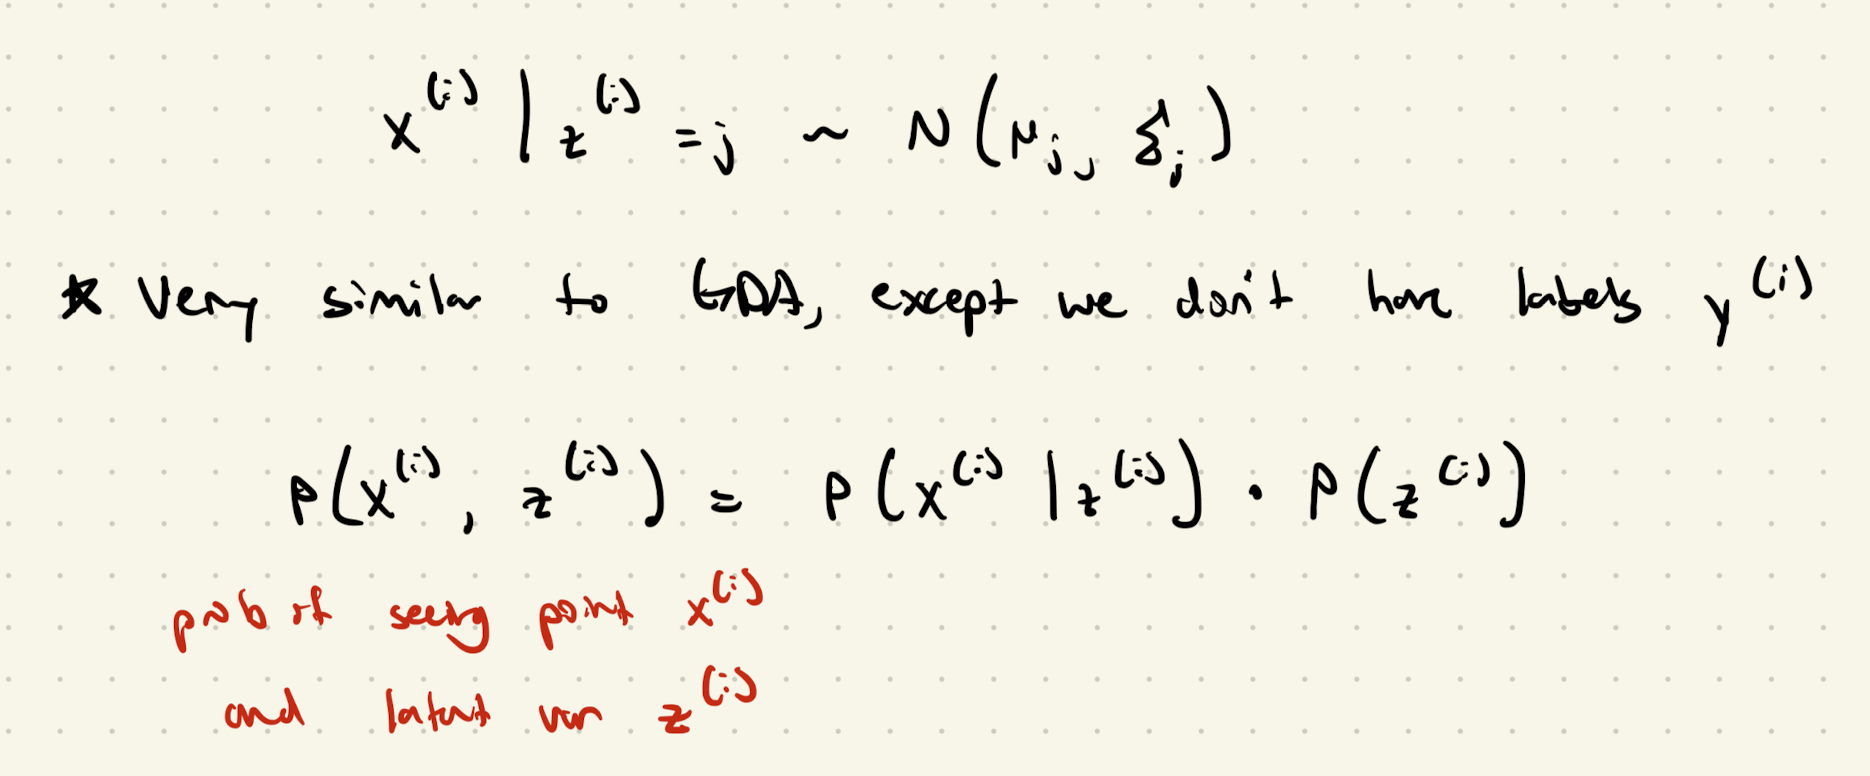 x⁽ⁱ⁾ | z⁽ⁱ⁾ = j ~ N(μⱼ, Σⱼ)
* Very similar to GDA, except we don't have labels y⁽ⁱ⁾
P(x⁽ⁱ⁾, z⁽ⁱ⁾) = P(x⁽ⁱ⁾ | z⁽ⁱ⁾) · P(z⁽ⁱ⁾)
prob of seeing point x⁽ⁱ⁾
and latent var z⁽ⁱ⁾